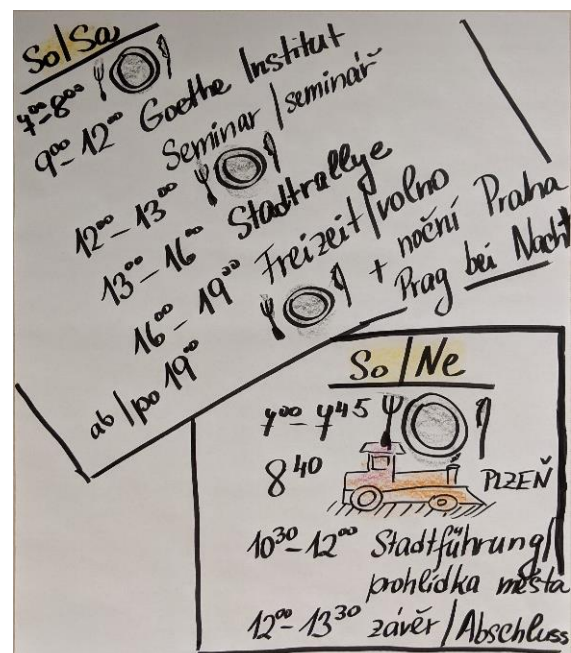 So/Sa
7⁰⁰-8⁰⁰
9⁰⁰-12⁰⁰ Goethe Institut
Seminar/seminář
12⁰⁰-13⁰⁰
13⁰⁰-16⁰⁰ Stadtrallye
16⁰⁰-19⁰⁰ Freizeit/volno
ab/po 19⁰⁰ + noční Praha
Prag bei Nacht
So/Ne
7⁰⁰-7⁴⁵
8⁴⁰ PLZEŇ
10³⁰-12⁰⁰ Stadtführung/
prohlídka města
12⁰⁰-13³⁰ závěr/Abschluss